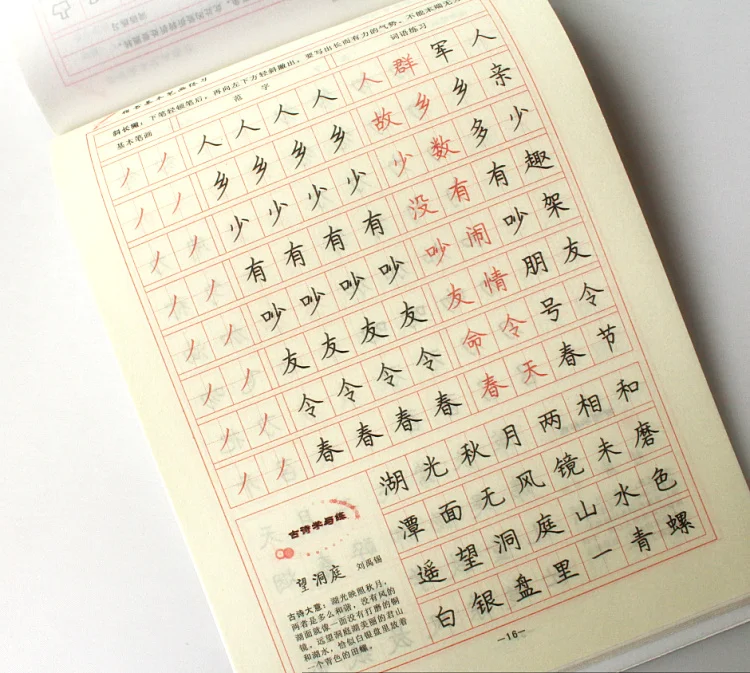 斜长撇：下笔轻顿笔后，再向左下方轻斜撇出，要写出长而有力的气势，不能末端无力
基本笔画 范字 词语练习
丿 丿 人 人 人 人 人 群 军 人
丿 丿 乡 乡 乡 乡 故 乡 乡 亲
丿 丿 少 少 少 少 少 数 多 少
丿 丿 有 有 有 有 没 有 有 趣
丿 丿 吵 吵 吵 吵 吵 闹 吵 架
丿 丿 友 友 友 友 友 情 朋 友
丿 丿 令 令 令 令 命 令 号 令
丿 丿 春 春 春 春 春 天 春 节
古诗学与练
望洞庭 刘禹锡
古诗大意：湖光映照秋月，
两者是多么和谐，没有风的
湖面就像一面没有打磨的铜
镜。远望洞庭湖美丽的君山
和湖水，恰似白银盘里放着
一个青色的田螺。
湖 光 秋 月 两 相 和
潭 面 无 风 镜 未 磨
遥 望 洞 庭 山 水 色
白 银 盘 里 一 青 螺
—16—